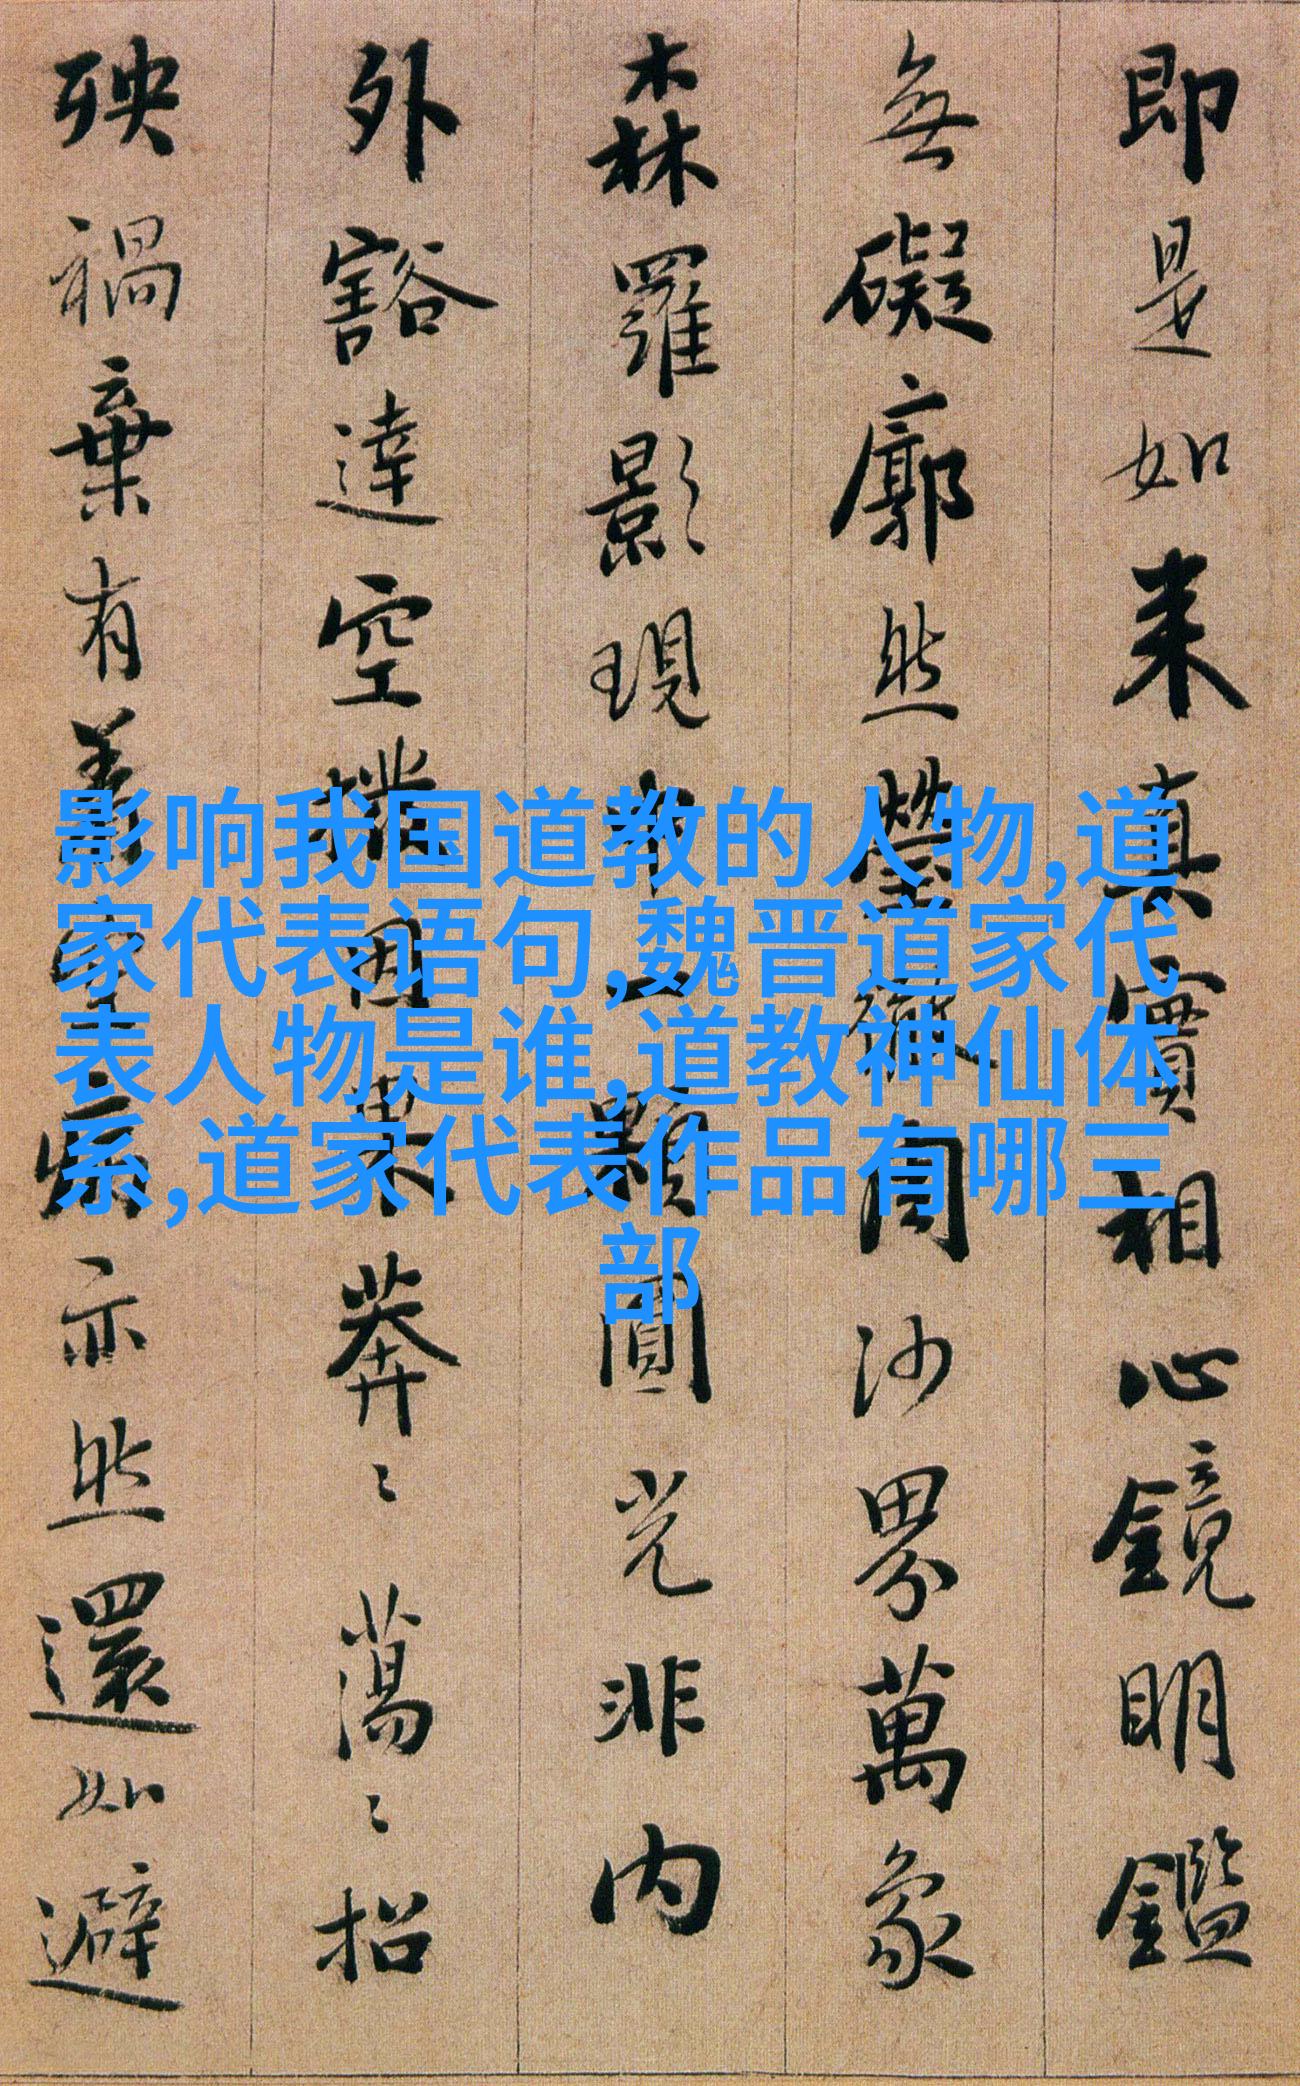 即是如来真實相心鏡明鑑
無礙廓然瑩徹周沙界萬象
森羅影現中一顆圓光非內
外豁達空撥因果莽〻蕩〻招
殃禍棄有著空病亦然還如避
影响我国道教的人物,道
家代表语句,魏晋道家代
表人物是谁,道教神仙体
系,道家代表作品有哪三
部